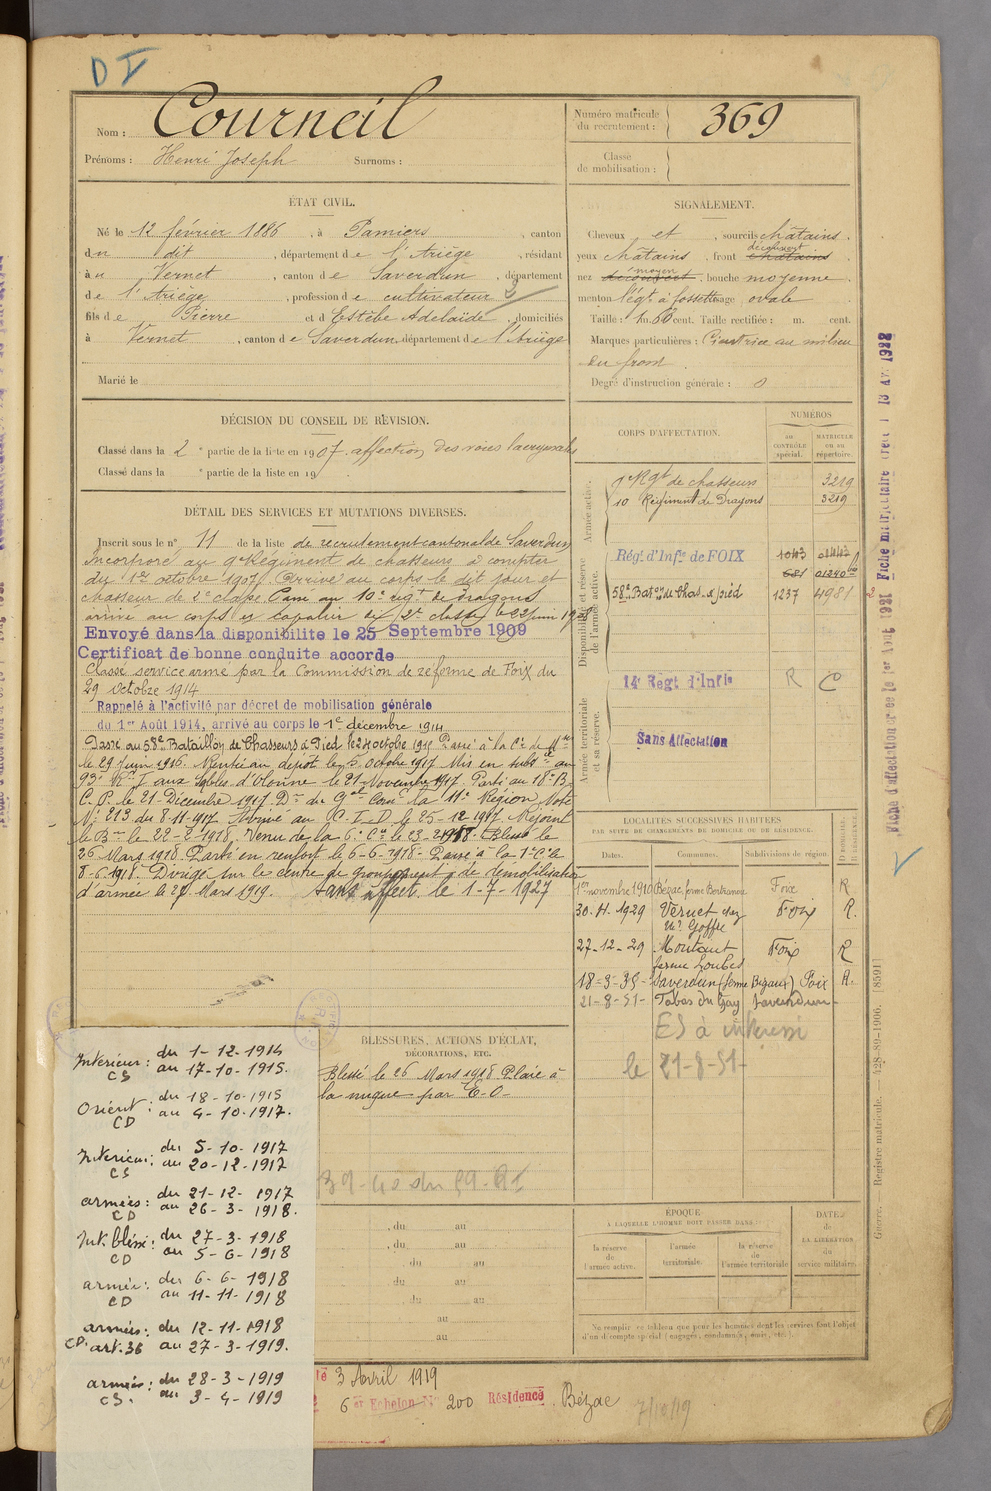 D I
Nom : Courneil
Prénoms : Henri Joseph Surnoms :
Numéro matricule
du recrutement : 369
Classe
de mobilisation :
ÉTAT CIVIL.
Né le 12 février 1886, à Pamiers, canton
du dit, département de l'Ariège, résidant
à u Vernet, canton de Saverdun, département
de l'Ariège, profession de cultivateur
fils de Pierre et d'Estèbe Adelaïde, domiciliés
à Vernet, canton de Saverdun, département de l'Ariège
Marié le
SIGNALEMENT.
Cheveux et, sourcils châtains.
yeux châtains, front découvert châtains
nez moyen découvert, bouche moyenne
menton légt à fossette visage ovale
Taille : 1 m. 60 cent. Taille rectifiée : m. cent.
Marques particulières : Cicatrice au milieu
du front.
Degré d'instruction générale : 0
DÉCISION DU CONSEIL DE RÉVISION.
Classé dans la 2e partie de la liste en 1907. affection des voies lacrymales
Classé dans la e partie de la liste en 19
DÉTAIL DES SERVICES ET MUTATIONS DIVERSES.
Inscrit sous le n° 11 de la liste de recrutement cantonal de Saverdun
Incorporé au 9e Régiment de chasseurs à compter
du 1er octobre 1907. Arrivé au corps le dit jour et
chasseur de 2e classe. Passé au 10e régt de dragons
arrivé au corps et cavalier de 2e classe le 22 juin 19
Envoyé dans la disponibilité le 25 Septembre 1909
Certificat de bonne conduite accordé
Classé service armé par la Commission de réforme de Foix du
29 octobre 1914
Rappelé à l'activité par décret de mobilisation générale
du 1er Août 1914, arrivé au corps le 1er décembre 1914
Passé au 58e Bataillon de Chasseurs à Pied le 24 octobre 1915 Passé à la Cie de Mses
le 29 Juin 1916. Rentré au dépôt le 5 octobre 1917 Mis en subsce au
93e R.I. aux Sables d'Olonne le 21 Novembre 1917. Parti au 18e B.
C.P. le 21 Décembre 1917. Don du Gal Comt la 11e Région Note
N° 213 du 8-11-1917. Affecté au C.I.D. le 25-12-1917. Rejoint
le Bon le 22-2-1918. Venu de la 6e Cie le 23-2-1918. Blessé le
26 Mars 1918. Parti en renfort le 6-6-1918. Passé à la 1e Cie le
8-6-1918. Dirigé sur le centre de groupement de démobilisation
d'armée le 28 Mars 1919. Sans affect. le 1-7-1927
CORPS D'AFFECTATION.
NUMÉROS
AU CONTRÔLE spécial.
MATRICULE OU AU répertoire.
Armée active.
9e Rgt de chasseurs 3219
10 Régiment de Dragons 3219
Disponibilité et réserve
de l'armée active.
Régt d'Infie de FOIX 1043 01442
681 01240
58e Baton de Chas. à pied 1237 4981
Armée territoriale
et sa réserve.
14e Régt d'Infie R C
Sans Affectation
LOCALITÉS SUCCESSIVES HABITÉES
PAR SUITE DE CHANGEMENTS DE DOMICILE OU DE RÉSIDENCE.
Dates. Communes. Subdivisions de région. D. DOMICILE. R. RÉSIDENCE.
1er novembre 1910 Bézac, ferme Bertranou Foix R
30-4-1929 Vernet chez Foix R.
Mr Goffre
27-12-29 Montaut Foix R
ferme Loubet
18-3-35 Saverdun (ferme Bigaux) Foix R.
21-8-51- Tabas du Gay Saverdun-
ES à intéressé
le 21-8-51-
BLESSURES, ACTIONS D'ÉCLAT,
DÉCORATIONS, ETC.
Blessé le 26 Mars 1918 Plaie à
la nuque par E.O-
Intérieur : du 1-12-1914
CS au 17-10-1915.
Orient : du 18-10-1915
CD au 4-10-1917.
Intérieur : du 5-10-1917
CS au 20-12-1917
armées : du 21-12-1917
CD au 26-3-1918.
Int. blessé : du 27-3-1918
CD au 5-6-1918
armées : du 6-6-1918
CD au 11-11-1918
armées : du 12-11-1918
CD. art. 36 au 27-3-1919.
armées : du 28-3-1919
CS. au 3-4-1919
, du au
, du au
, du au
, du au
, du au
au
au
ÉPOQUE
A LAQUELLE L'HOMME DOIT PASSER DANS :
la réserve de l'armée active.
l'armée territoriale.
la réserve de l'armée territoriale
DATE
de
LA LIBÉRATION
du
service militaire.
Ne remplir ce tableau que pour les hommes dont les services font l'objet
d'un décompte spécial (engagés, condamnés, omis, etc.).
le 3 Avril 1919
6e Echelon N° 200 Résidence Bézac
7/10/19
Guerre. — Registre matricule. — 428-89-1906. [8591]
Fiche d'affectation créée le 1er Août 1921 Fiche matriculaire créée